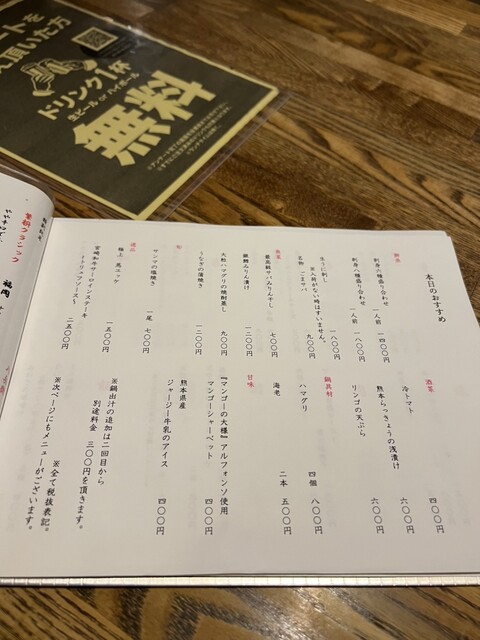 ドリンク1杯
生ビール or ハイボール
無料
本日のおすすめ
鮮魚
刺身六種盛り合わせ 一人前 一四〇〇円
刺身八種盛り合わせ 一人前 一八〇〇円
生うに刺し 一八〇〇円
※入荷がない時はすいません。
名物 ごまサバ 九〇〇円
魚菜
最高級サバみりん干し 七〇〇円
銀鱈みりん漬け 一二〇〇円
大和ハマグリの焼酎蒸し 九〇〇円
うなぎの蒲焼き 一二〇〇円
旬
サンマの塩焼き 一尾 七〇〇円
逸品
極上 馬ユッケ 一五〇〇円
宮崎和牛サーロインステーキ
～トリュフソース～ 二五〇〇円
酒菜
冷トマト 四〇〇円
熊本らっきょうの浅漬け 六〇〇円
リンゴの天ぷら 六〇〇円
鍋具材
ハマグリ 四個 八〇〇円
海老 二本 五〇〇円
甘味
『マンゴーの大様』アルフォンソ使用
マンゴーシャーベット 四〇〇円
熊本県産
ジャージー牛乳のアイス 四〇〇円
※鍋出汁の追加は二回目から
別途料金 三〇〇円を頂きます。
※全て税抜表記。
※次ページにもメニューがございます。